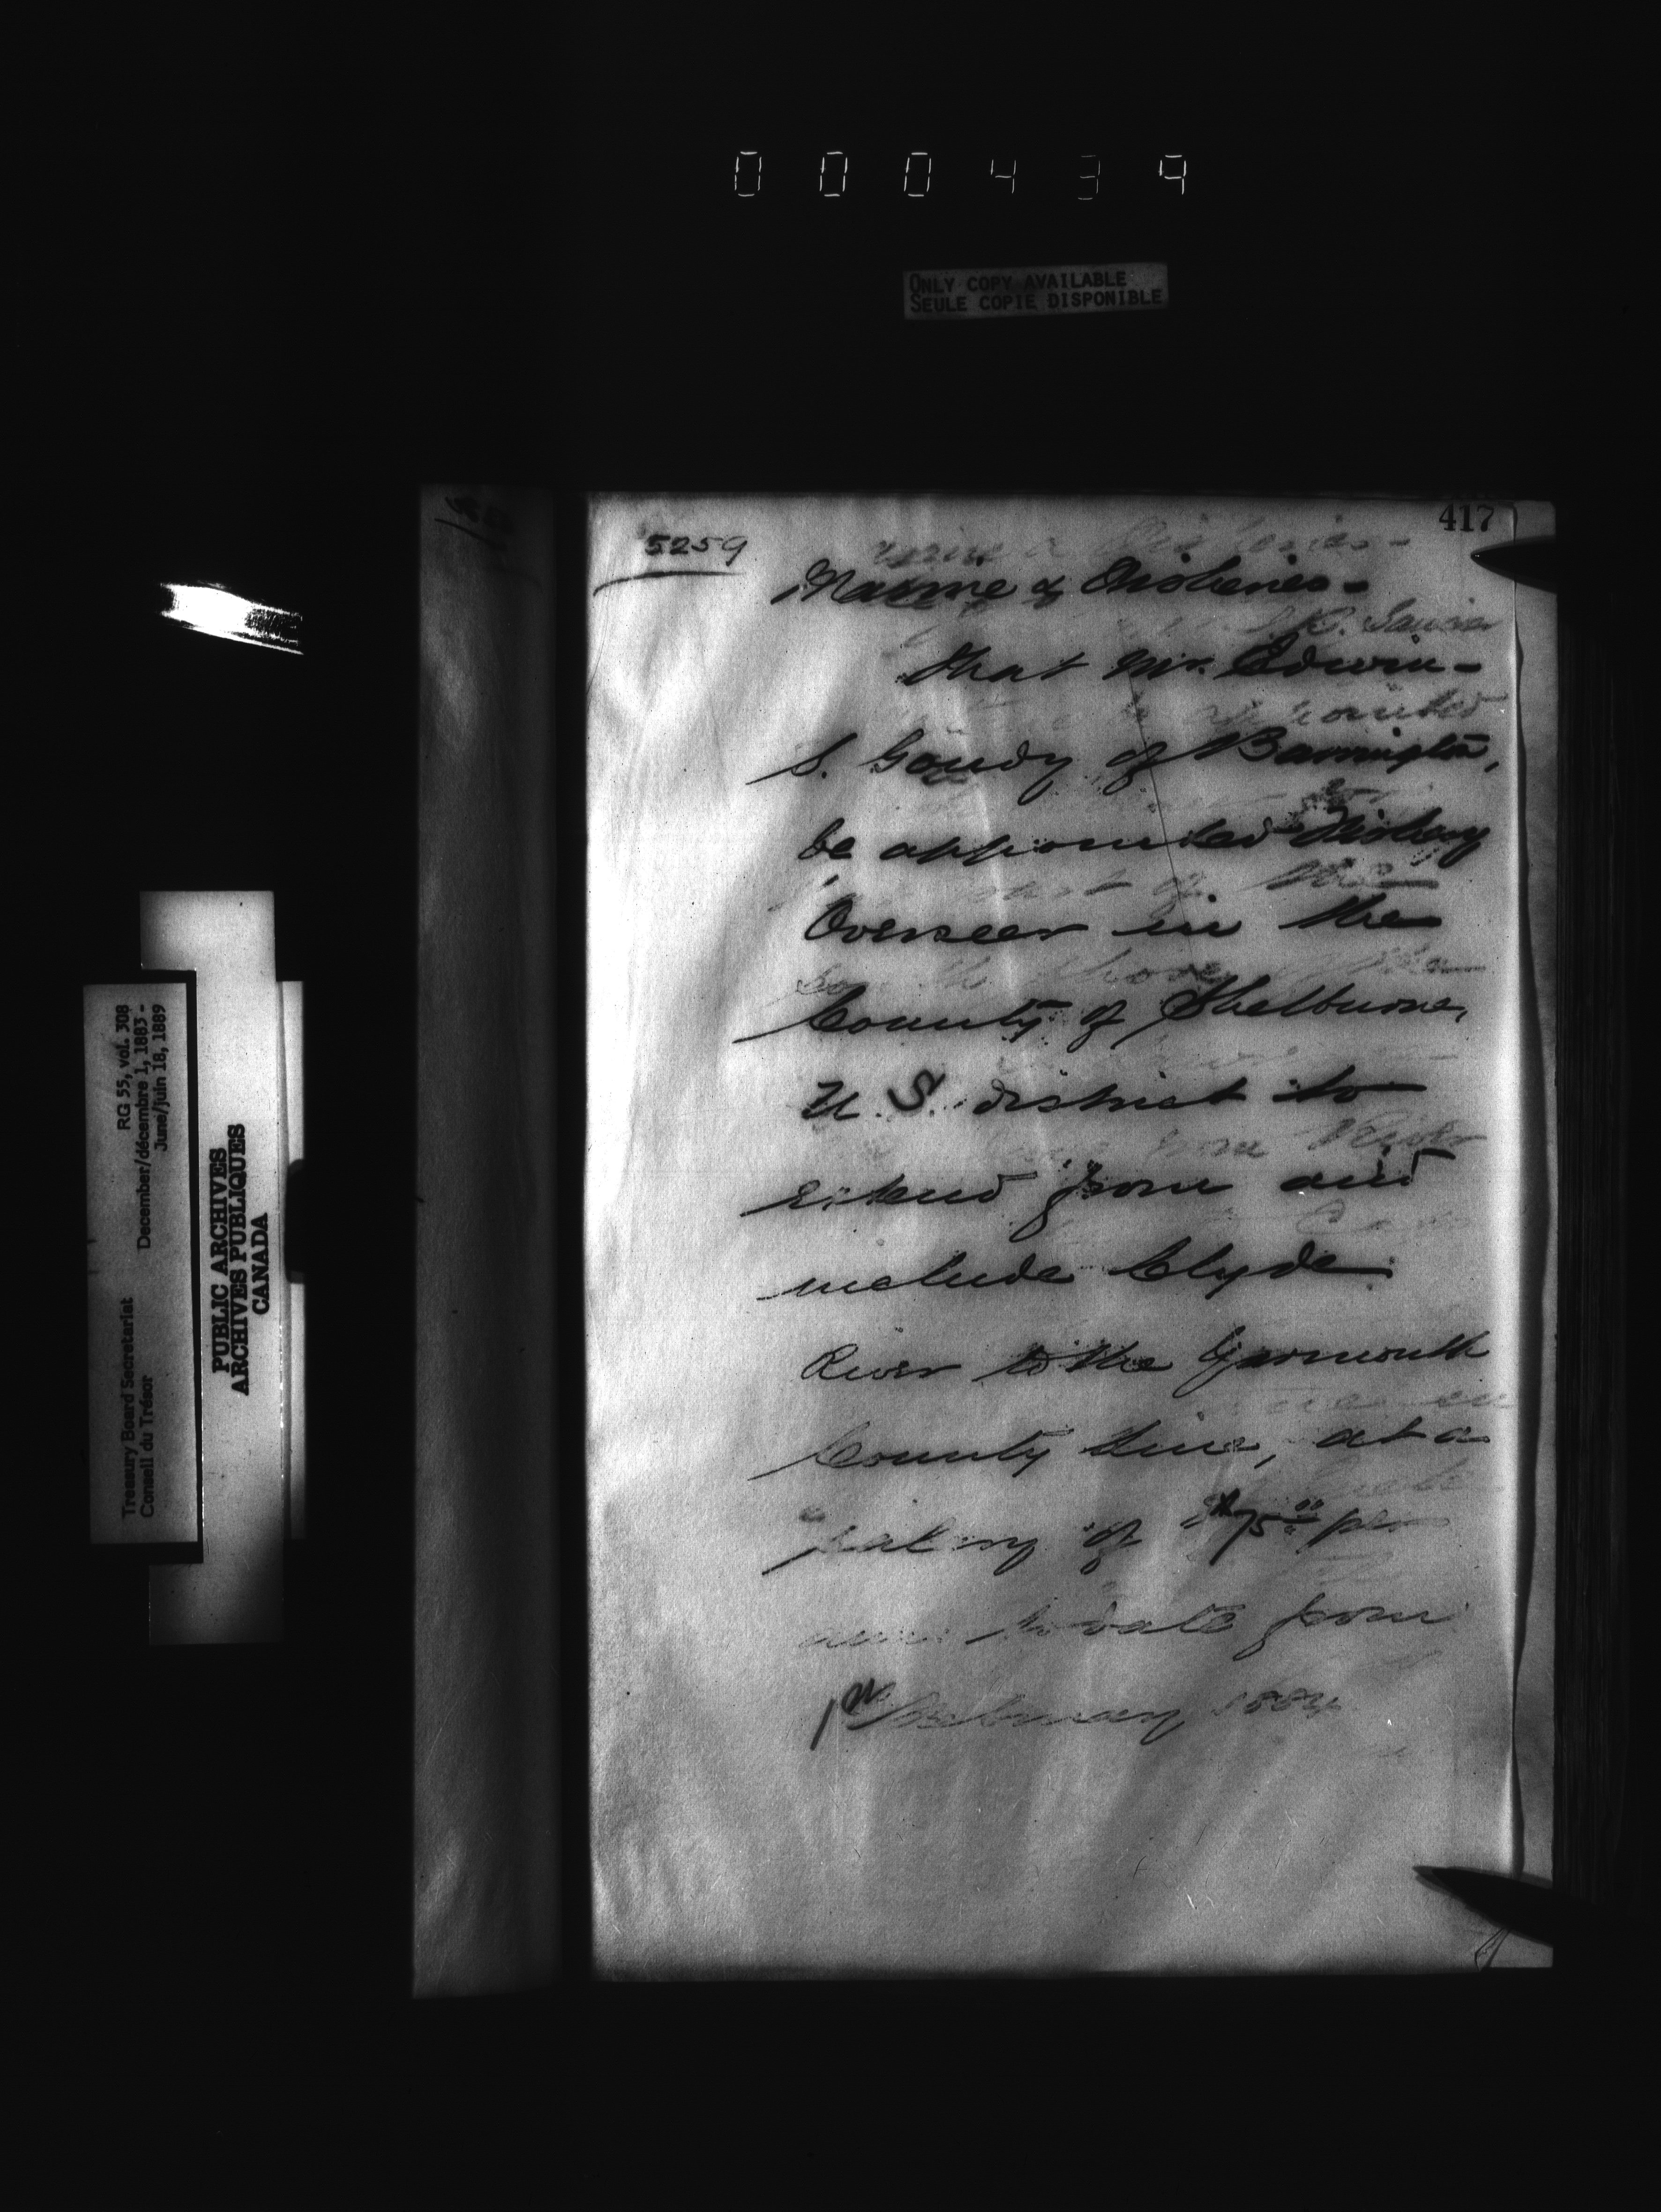 000439
ONLY COPY AVAILABLE
SEULE COPIE DISPONIBLE
417
5259
Marine & Fisheries -
That Mr. Edwin -
S. Goudy of Barrington,
be appointed Fishery
Overseer in the
County of Shelburne,
N. S. district to
extend from and
include Clyde
River to the Yarmouth
County line, at a
salary of $75.00 per
ann. to date from
1st February 1884
Treasury Board Secretariat RG 55, vol. 308
Conseil du Trésor December/décembre 1, 1883 -
June/juin 18, 1889
PUBLIC ARCHIVES
ARCHIVES PUBLIQUES
CANADA